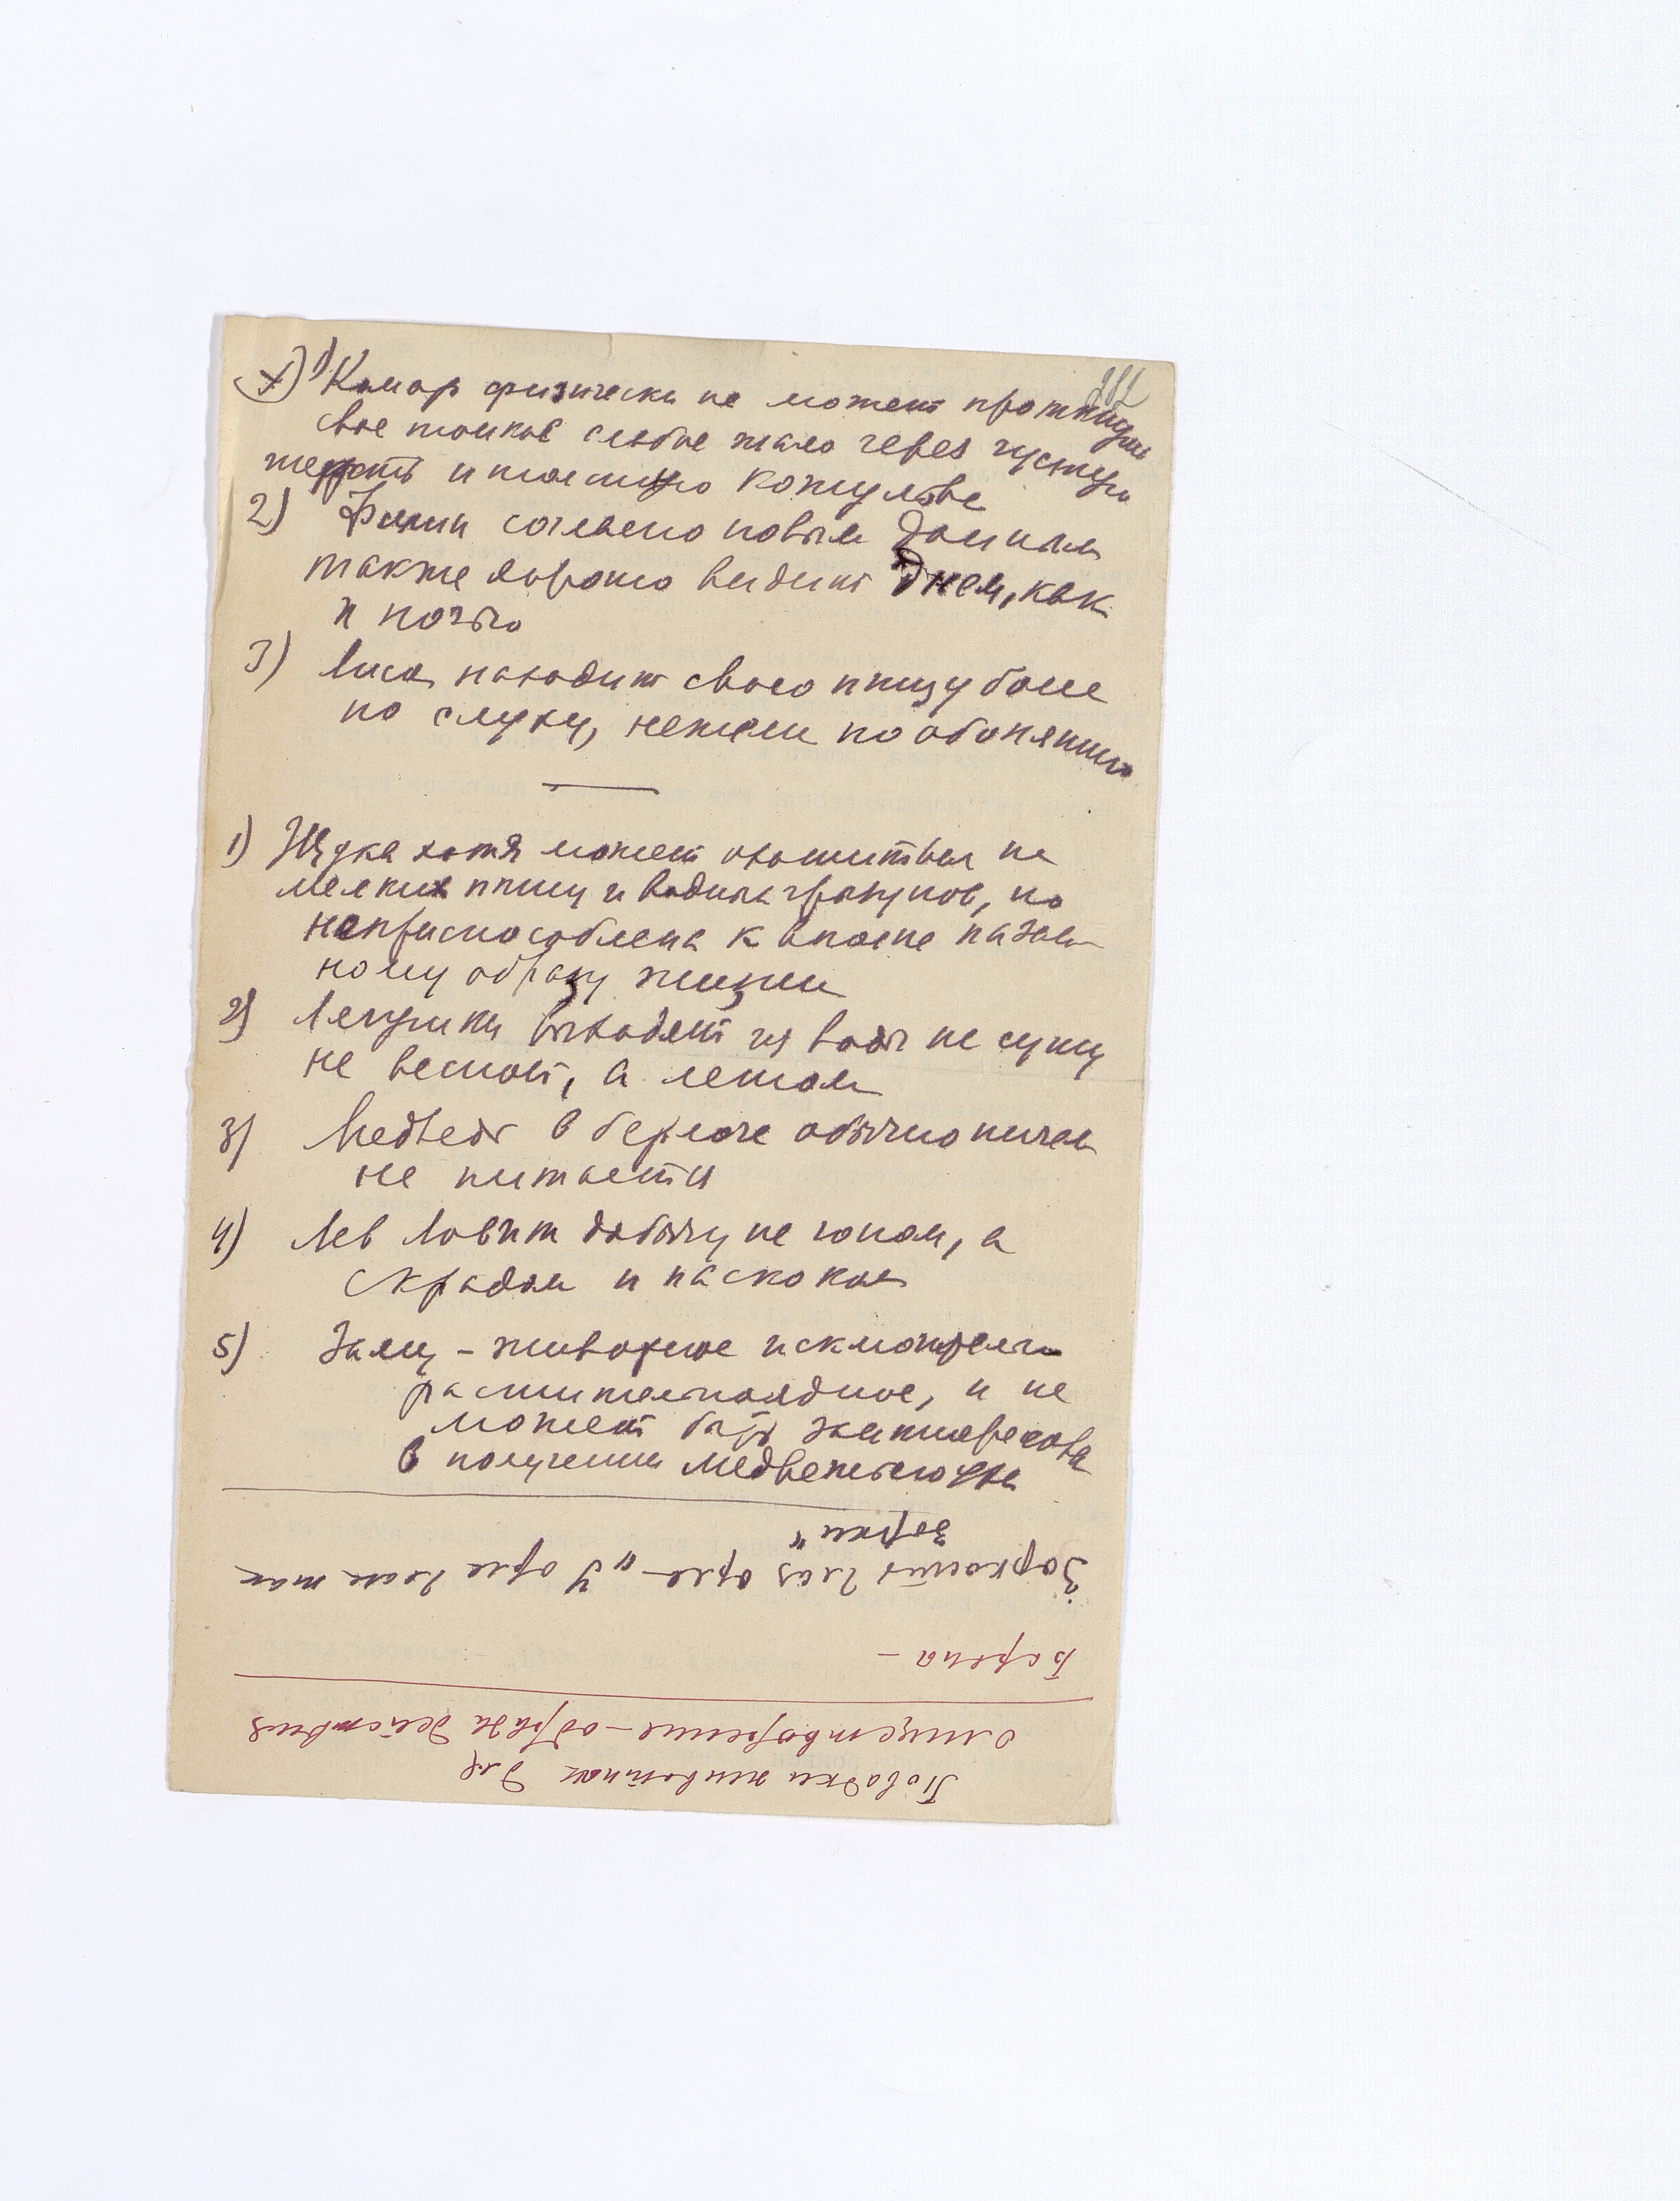 1) Комар физически не может протиснуть
свое тонкое слабое жало через густую
шерсть и толстую кожу льва
2) Филин согласно новым данным
также хорошо видит днем, как
и ночью
3) Лиса находит свою птицу более
по слуху, нежели по обонянию
1) Щука хотя может охотиться на
мелких птиц и водных грызунов, но
неприспособлена к вполне назем-
ному образу жизни
2) Лягушки выходят из воды на сушу
не весной, а летом
3) Медведь в берлоге обычно ничем
не питается
4) Лев ловит добычу не гоном, а
скрадом и наскоком
5) Заяц – животное исключительно
растительноядное, и не
может быть заинтересован
в получении медвежьего уха
Повадки животных для
олицетворения – образа действия
Барона –
Зоркость глаз орла – „У орла глаза так
зорки"